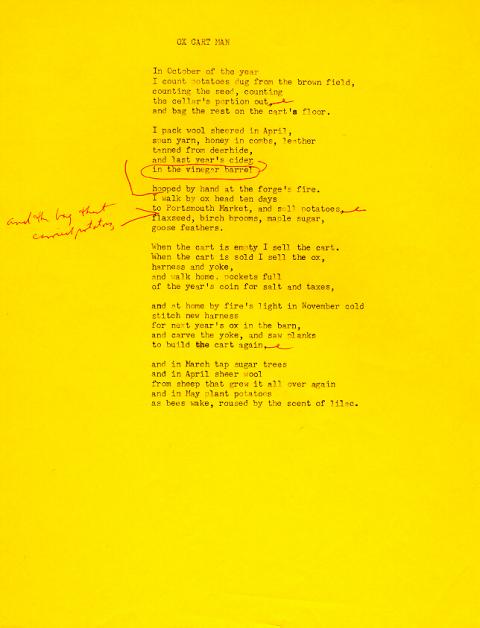 OX CART MAN
In October of the year
I count potatoes dug from the brown field,
counting the seed, counting
the cellar's portion out,
and bag the rest on the cart's floor.
I pack wool sheered in April,
spun yarn, honey in combs, leather
tanned from deerhide,
and last year's cider
in the vinegar barrel
hooped by hand at the forge's fire.
I walk by ox head ten days
to Portsmouth Market, and sell potatoes,
and the bag that
carried potatoes,
flaxseed, birch brooms, maple sugar,
goose feathers.
When the cart is empty I sell the cart.
When the cart is sold I sell the ox,
harness and yoke,
and walk home, pockets full
of the year's coin for salt and taxes,
and at home by fire's light in November cold
stitch new harness
for next year's ox in the barn,
and carve the yoke, and saw planks
to build the cart again,
and in March tap sugar trees
and in April sheer wool
from sheep that grew it all over again
and in May plant potatoes
as bees wake, roused by the scent of lilac.